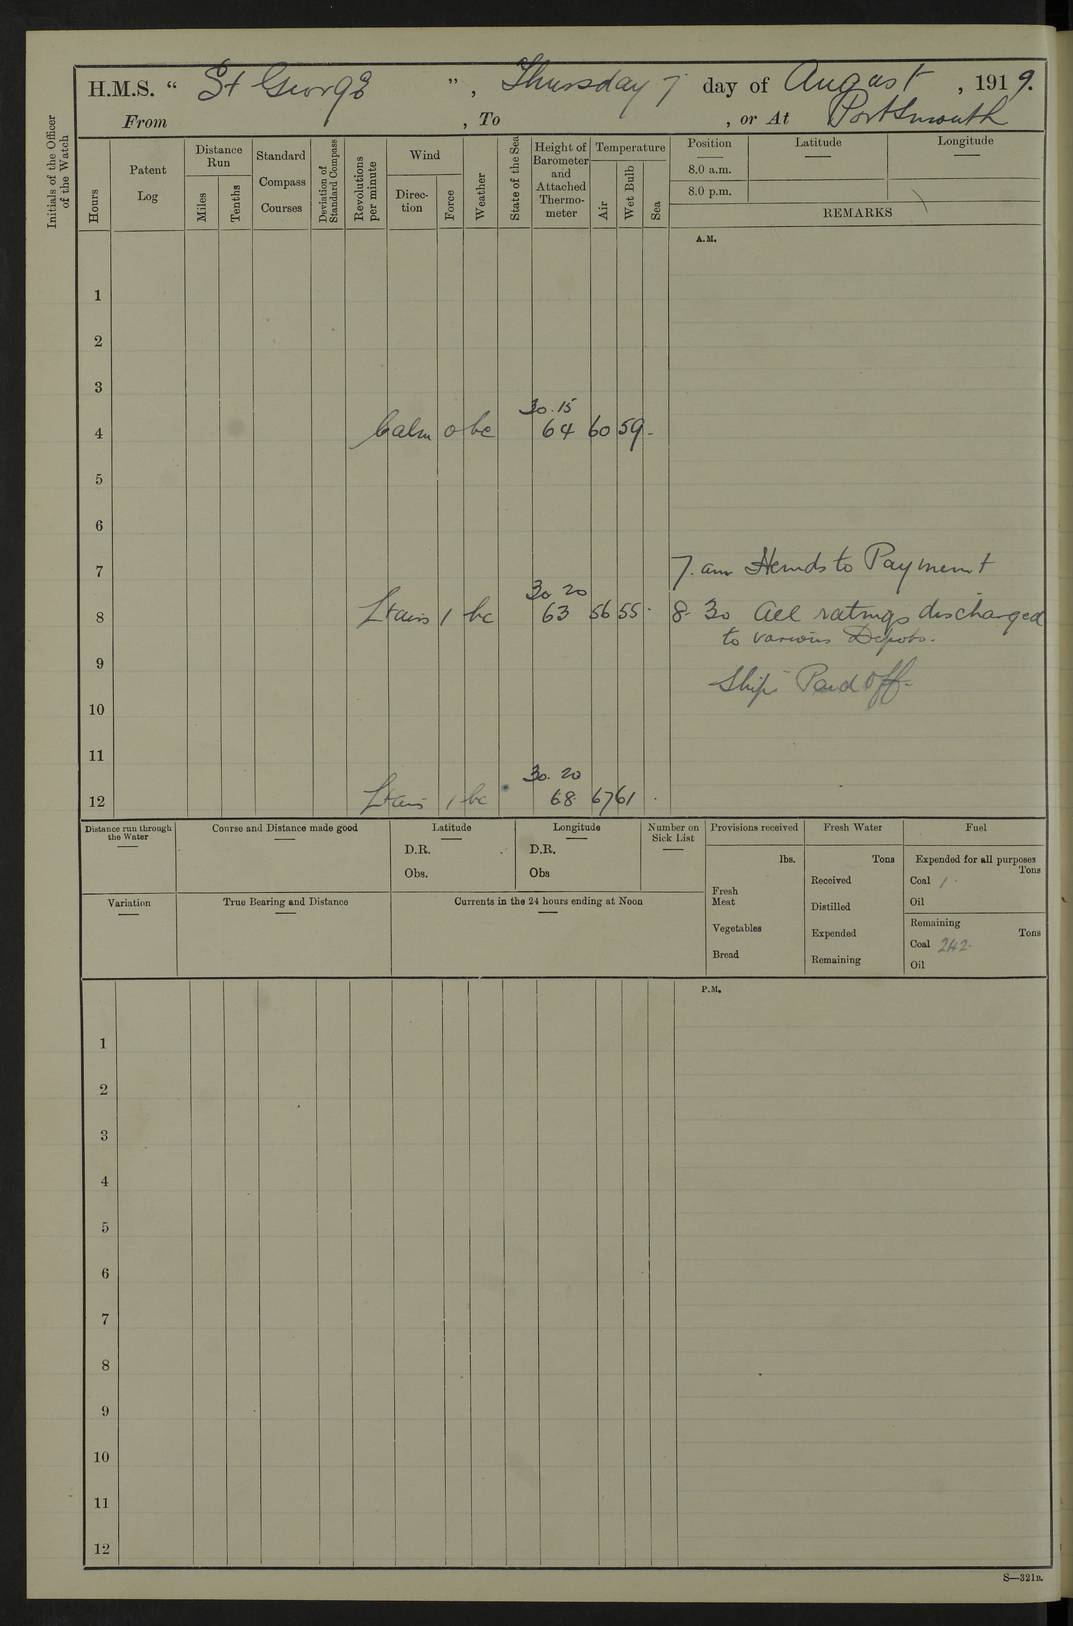 H.M.S. “ St George ”, Thursday 7 day of August, 1919.
From , To , or At Portsmouth
Initials of the Officer of the Watch
Hours
Patent Log
Distance Run
Miles
Tenths
Standard Compass Courses
Deviation of Standard Compass
Revolutions per minute
Wind
Direction
Force
Weather
State of the Sea
Height of Barometer and Attached Thermometer
Temperature
Air
Wet Bulb
Sea
Position
8.0 a.m.
8.0 p.m.
Latitude
Longitude
REMARKS
A.M.
1
2
3
30.15
4 Calm 0 bc 64 60 59 -
5
6
7 7. am Hands to Payment
30 20
8 Lt airs 1 bc 63 56 55 . 8. 30 All ratings discharged
to various Depots.
9
Ship Paid Off.
10
11
30. 20
12 Lt airs 1 bc 68 67 61 .
Distance run through the Water
Course and Distance made good
Latitude
D.R.
Obs.
Longitude
D.R.
Obs
Number on Sick List
Provisions received
lbs.
Fresh Meat
Vegetables
Bread
Fresh Water
Tons
Received
Distilled
Expended
Remaining
Fuel
Expended for all purposes
Tons
Coal 1 .
Oil
Remaining
Tons
Coal 242.
Oil
Variation
True Bearing and Distance
Currents in the 24 hours ending at Noon
P.M.
1
2
3
4
5
6
7
8
9
10
11
12
S—321B.